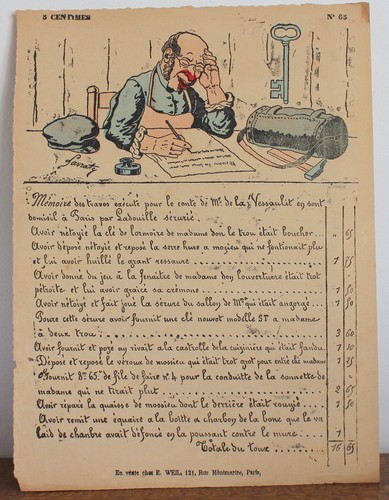 5 CENTIMES
N° 65
Mémoire des travos exécuté pour le conte de Mr de la Vessaulit en sont
domisil à Paris par Ladouille sérurié.
Avoir nétoyié la clé de lormoire de madame don le trou était boucher.. " 65
Avoir déposé nétoyié et reposé la serre hure a mosieu qui ne fontionait plu
et lui avoir huillé le grant ressaure 1 75
Avoir donné du jeu à la fenêitre de madame don louverture était trot
pétroite et lui avoir graicé sa crémone 1 50
Avoir nétoyé et fait joué la sérure du sallon de Mme qui était angorgé... 1 50
Poure cette sérure avoir fournit une clé nouvot modelle 5T a madame
à deux trou 3 60
Avoir fournit et pozé un rivoit a la castrolle de la cuizinière qui était fandu. 1 10
Déposé et reposé le véroux de mossieu qui était trot grot pour entré ché madame 1 25
Fournit 8m 65c de file de faire n° 4 pour la conduitte de la sonnette de
madame qui ne tirait plut 2 65
Avoir réparé la quaisse de mossieu dont le derrière était rouyié 1 50
Avoir remit une équaire a la boitte a charbon de la bone que le va
laid de chanbre avait défoncé en la poussant contre le mure 1
Totale du toux 16 85
En vente chez E. WEIL, 121, Rue Montmartre, Paris,